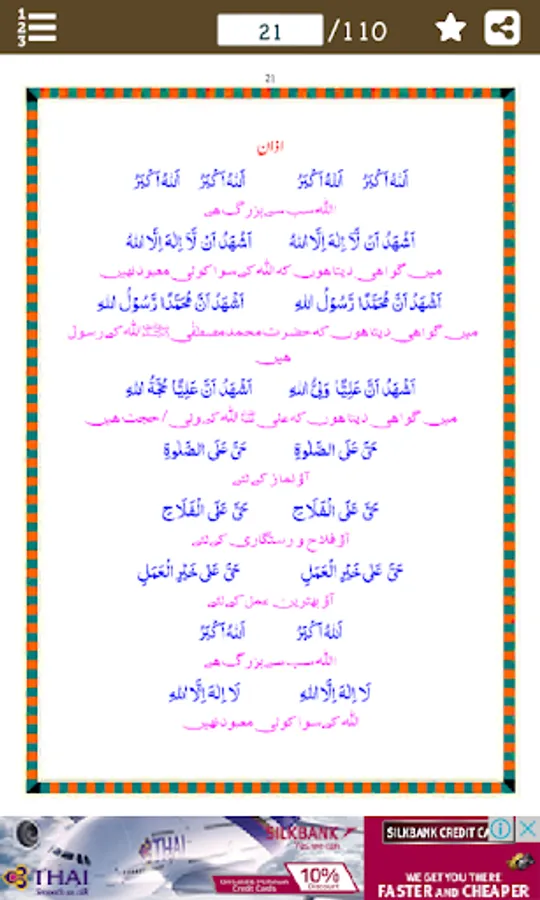 1
2
3
21
/110
21
اذان
اَللهُ اَكْبَرُ اَللهُ اَكْبَرُ اَللهُ اَكْبَرُ اَللهُ اَكْبَرُ
الله سب سے بزرگ ہے
اَشْهَدُ اَنْ لَّا اِلٰهَ اِلَّا اللهُ اَشْهَدُ اَنْ لَّا اِلٰهَ اِلَّا اللهُ
میں گواہی دیتا ہوں کہ الله کے سوا کوئی معبود نہیں
اَشْهَدُ اَنَّ مُحَمَّدًا رَّسُوْلُ اللهِ اَشْهَدُ اَنَّ مُحَمَّدًا رَّسُوْلُ اللهِ
میں گواہی دیتا ہوں کہ حضرت محمد مصطفٰی ﷺ الله کے رسول
ہیں
اَشْهَدُ اَنَّ عَلِيًّا وَلِيُّ اللهِ اَشْهَدُ اَنَّ عَلِيًّا حُجَّةُ اللهِ
میں گواہی دیتا ہوں کہ علی الله کے ولی / حجت ہیں
حَيَّ عَلَى الصَّلٰوةِ حَيَّ عَلَى الصَّلٰوةِ
آؤ نماز کے لئے
حَيَّ عَلَى الْفَلَاحِ حَيَّ عَلَى الْفَلَاحِ
آؤ فلاح و رستگاری کے لئے
حَيَّ عَلٰى خَيْرِ الْعَمَلِ حَيَّ عَلٰى خَيْرِ الْعَمَلِ
آؤ بہترین عمل کے لئے
اَللهُ اَكْبَرُ اَللهُ اَكْبَرُ
الله سب سے بزرگ ہے
لَا اِلٰهَ اِلَّا اللهُ لَا اِلٰهَ اِلَّا اللهُ
الله کے سوا کوئی معبود نہیں
THAI
THAI
Smooth as silk
SILKBANK
Yes we can
Credit Cards
10%
Discount
SILKBANK CREDIT CA
WE GET YOU THERE
FASTER AND CHEAPER